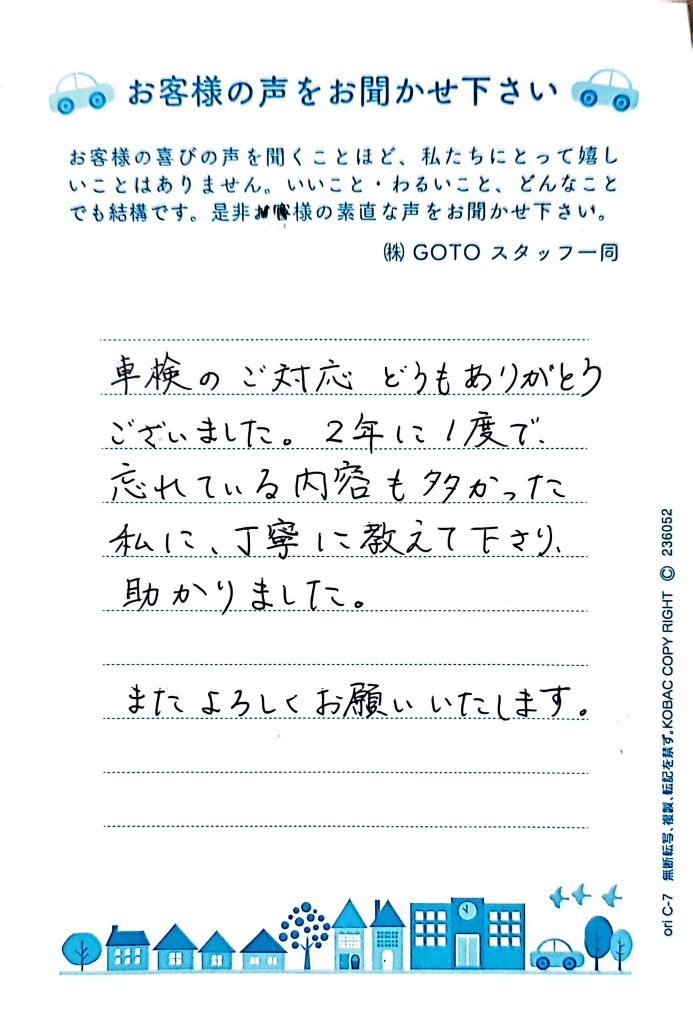 お客様の声をお聞かせ下さい
お客様の喜びの声を聞くことほど、私たちにとって嬉し
いことはありません。いいこと・わるいこと、どんなこと
でも結構です。是非お客様の素直な声をお聞かせ下さい。
㈱ GOTO スタッフ一同
車検のご対応 どうもありがとう
ございました。2年に1度で、
忘れている内容も多かった
私に、丁寧に教えて下さり、
助かりました。
またよろしくお願いいたします。
ori C-7 無断転写、複製、転記を禁ず。KOBAC COPY RIGHT © 236052